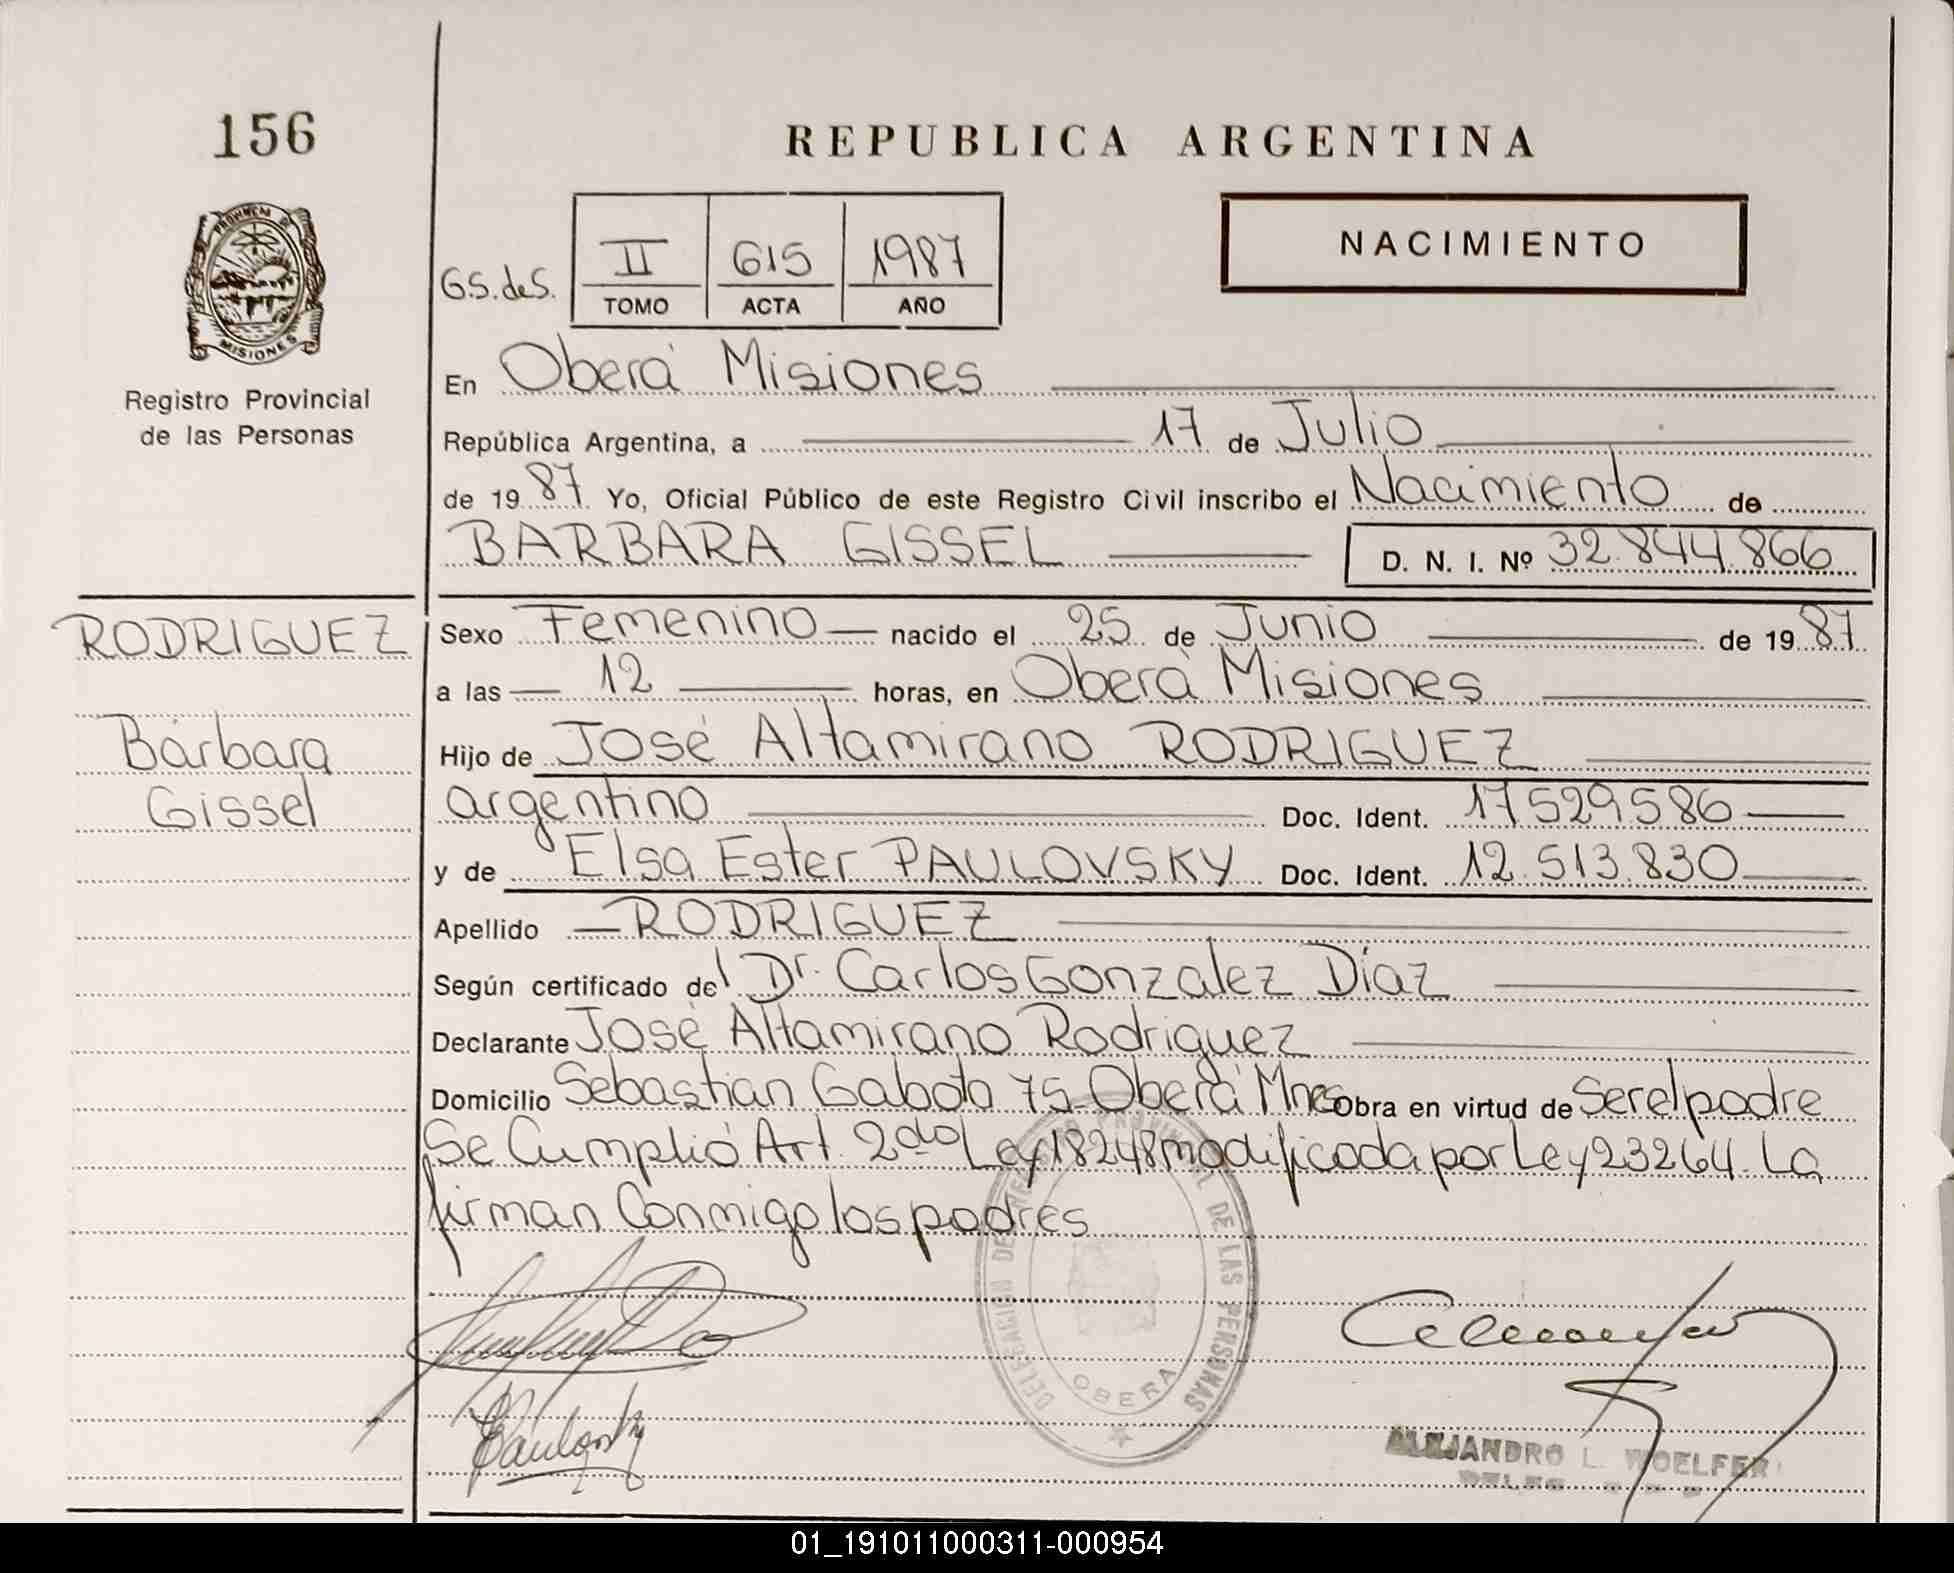 156
REPUBLICA ARGENTINA
PROVINCIA DE
MISIONES
Registro Provincial
de las Personas
G.S. de S.
II 615 1987
TOMO ACTA AÑO
NACIMIENTO
En Oberá Misiones
República Argentina, a 17 de Julio
de 19 87 Yo, Oficial Público de este Registro Civil inscribo el Nacimiento de
BARBARA GISSEL D. N. I. Nº 32.844.866
RODRIGUEZ
Bárbara
Gissel
Sexo Femenino nacido el 25 de Junio de 19 87
a las 12 horas, en Oberá Misiones
Hijo de José Altamirano RODRIGUEZ
argentino Doc. Ident. 17529586
y de Elsa Ester PAULOVSKY Doc. Ident. 12.513.830
Apellido RODRIGUEZ
Según certificado del Dr. Carlos Gonzalez Díaz
Declarante José Altamirano Rodriguez
Domicilio Sebastian Gaboto 75 Oberá Mnes Obra en virtud de Ser el padre
Se Cumplió Art. 2do Ley 18248 modificada por Ley 23264. La
firman Conmigo los padres
DELEGACION DEL REGISTRO PROVINCIAL DE LAS PERSONAS
OBERA
EPaulovsky
ALEJANDRO L. WOELFER
01_191011000311-000954